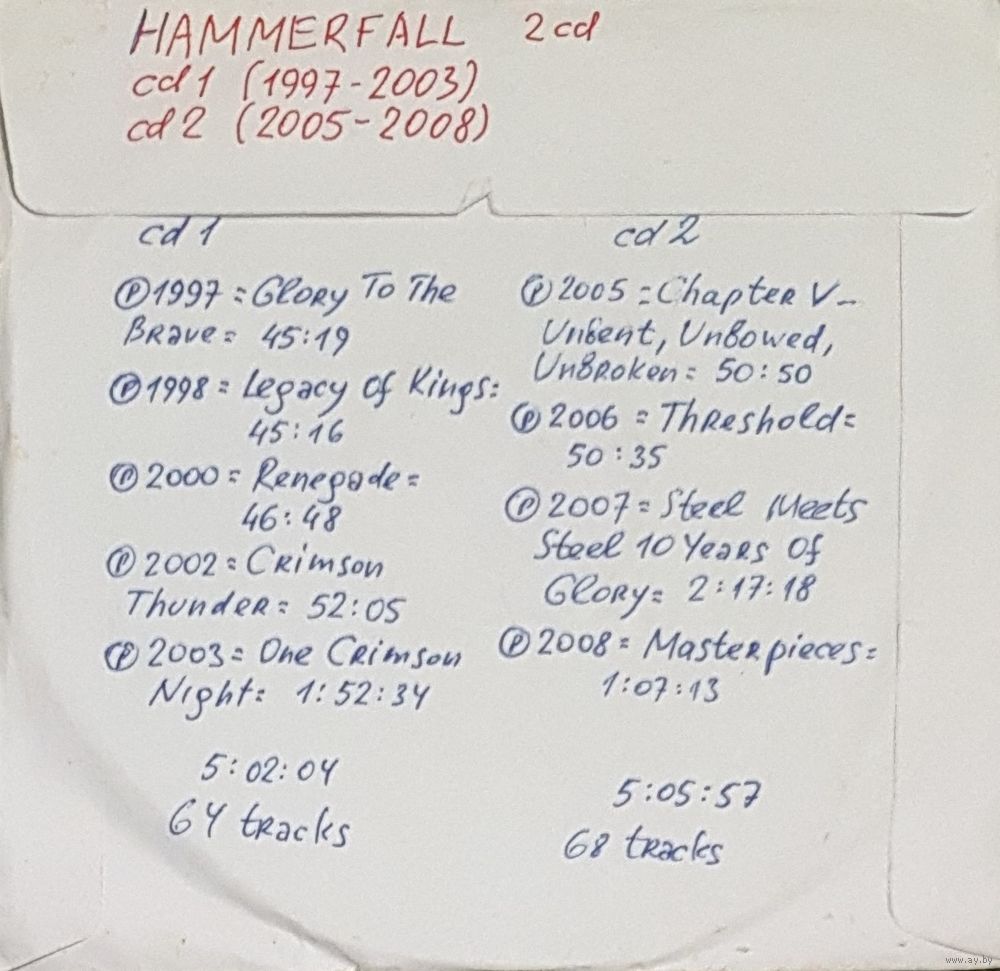 HAMMERFALL 2cd
cd1 (1997-2003)
cd2 (2005-2008)
cd1
Ⓟ1997=Glory To The
Brave= 45:19
Ⓟ1998= Legacy Of Kings=
45:16
Ⓟ2000= Renegade=
46:48
Ⓟ2002=Crimson
Thunder= 52:05
Ⓟ2003= One Crimson
Night= 1:52:34
5:02:04
64 tracks
cd2
Ⓟ2005=Chapter V-
Unbent, UnBowed,
UnBroken= 50:50
Ⓟ2006 =Threshold=
50:35
Ⓟ2007=Steel Meets
Steel 10 Years Of
Glory= 2:17:18
Ⓟ2008= Masterpieces=
1:07:13
5:05:57
68 tracks
www.ay.by